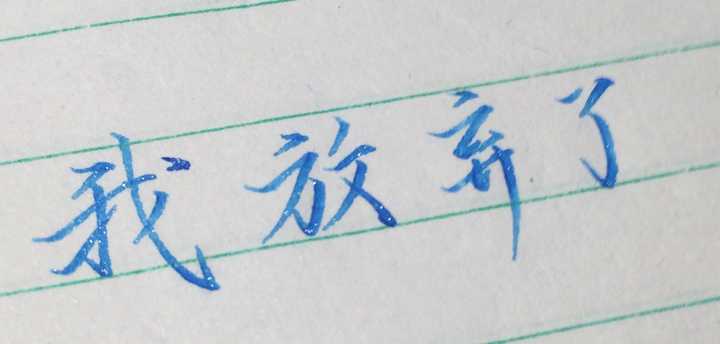 我放弃了